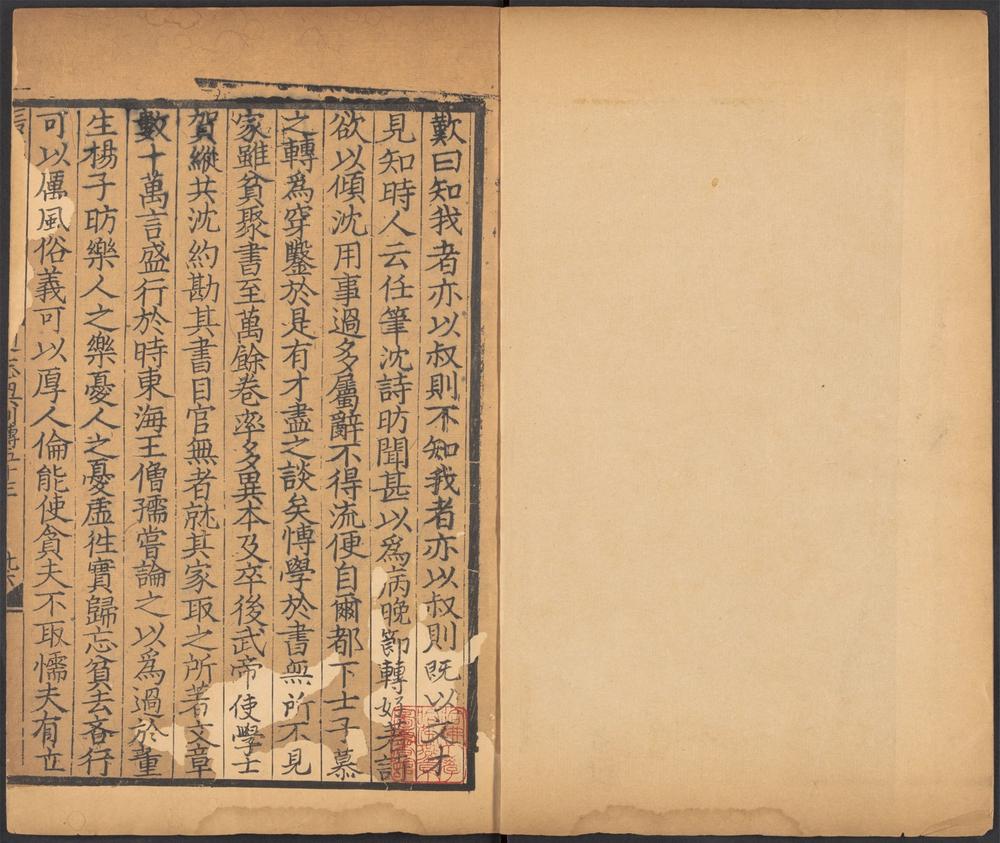 歎曰知我者亦以叔則不知我者亦以叔則既以文才
見知時人云任筆沈詩昉聞甚以爲病晚節轉好著詩
欲以傾沈用事過多屬辭不得流便自爾都下士子慕
之轉爲穿鑿於是有才盡之談矣愽學於書無所不見
家雖貧聚書至萬餘卷率多異本及卒後武帝使學士
賀縱共沈約勘其書目官無者就其家取之所著文章
數十萬言盛行於時東海王僧孺嘗論之以爲過於董
生楊子昉樂人之樂憂人之憂虛徃實歸忘貧去吝行
可以厲風俗義可以厚人倫能使貪夫不取懦夫有立
列傳五十三